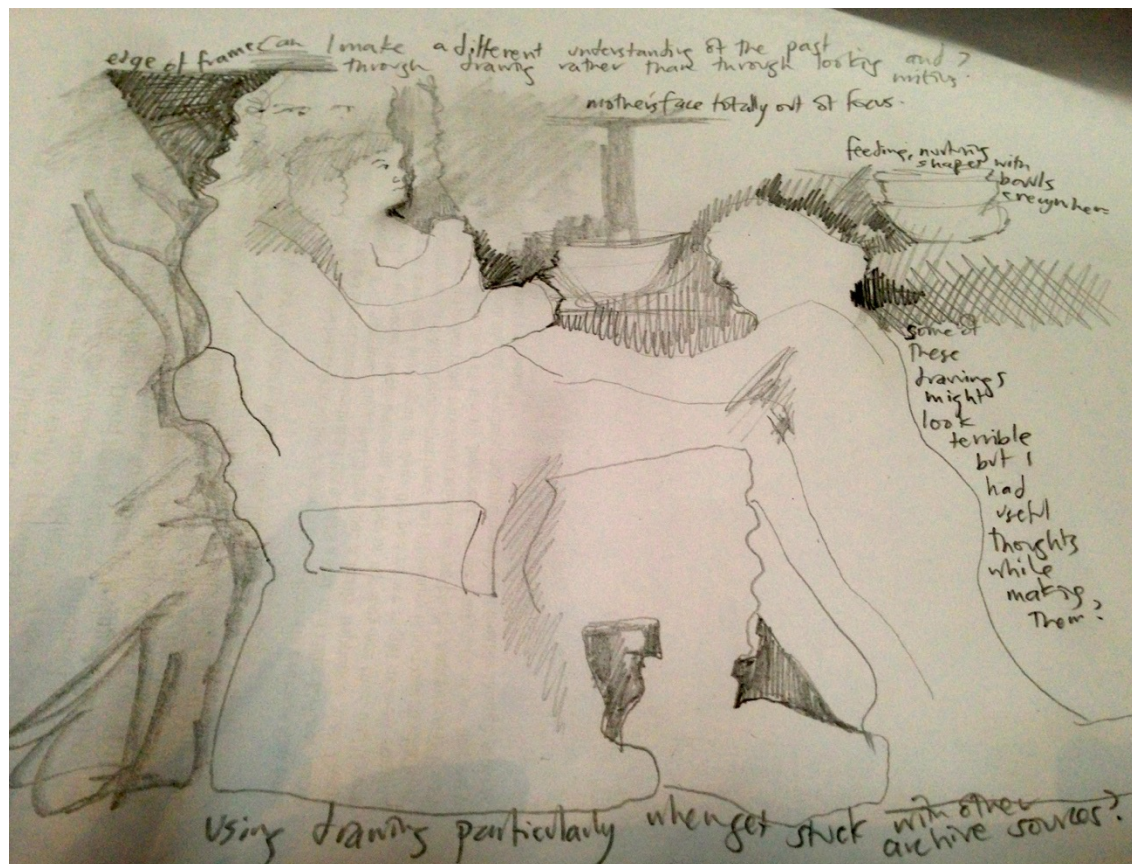 edge of frame
Can I make a different understanding of the past
through drawing rather than through looking and ?
writing.
mother's face totally out of focus.
feeding, nurturing
shapes with
bowls
everywhere
some of
these
drawings
might
look
terrible
but I
had
useful
thoughts
while
making
them?
using drawing particularly when get stuck with other
archive sources?